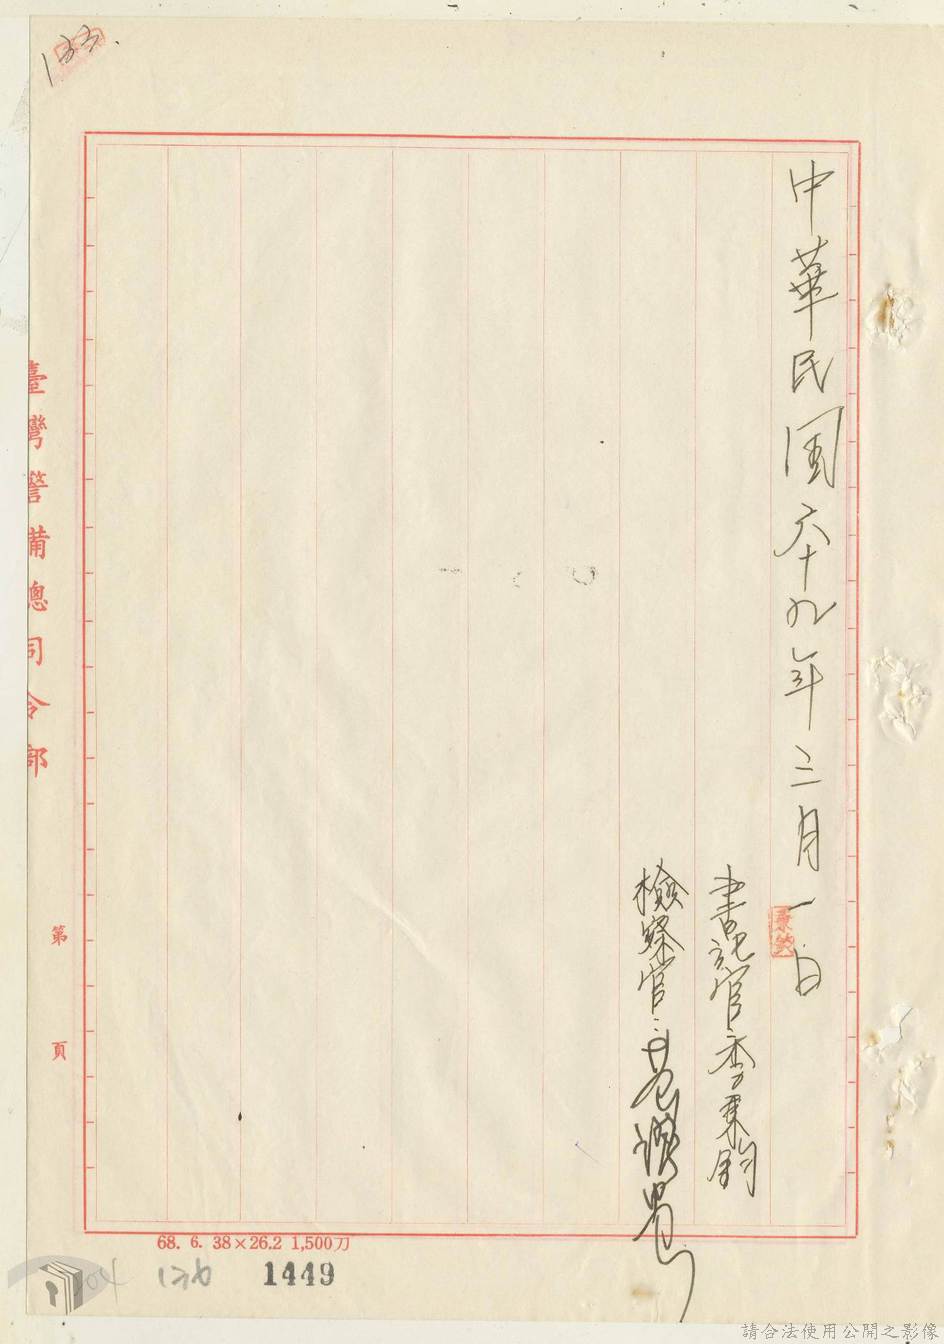 133.
中華民国六十九年三月一日
書記官:李秉鈞
檢察官:
臺灣警備總司令部
第 頁
68. 6. 38×26.2 1,500刀
1449
請合法使用公開之影像